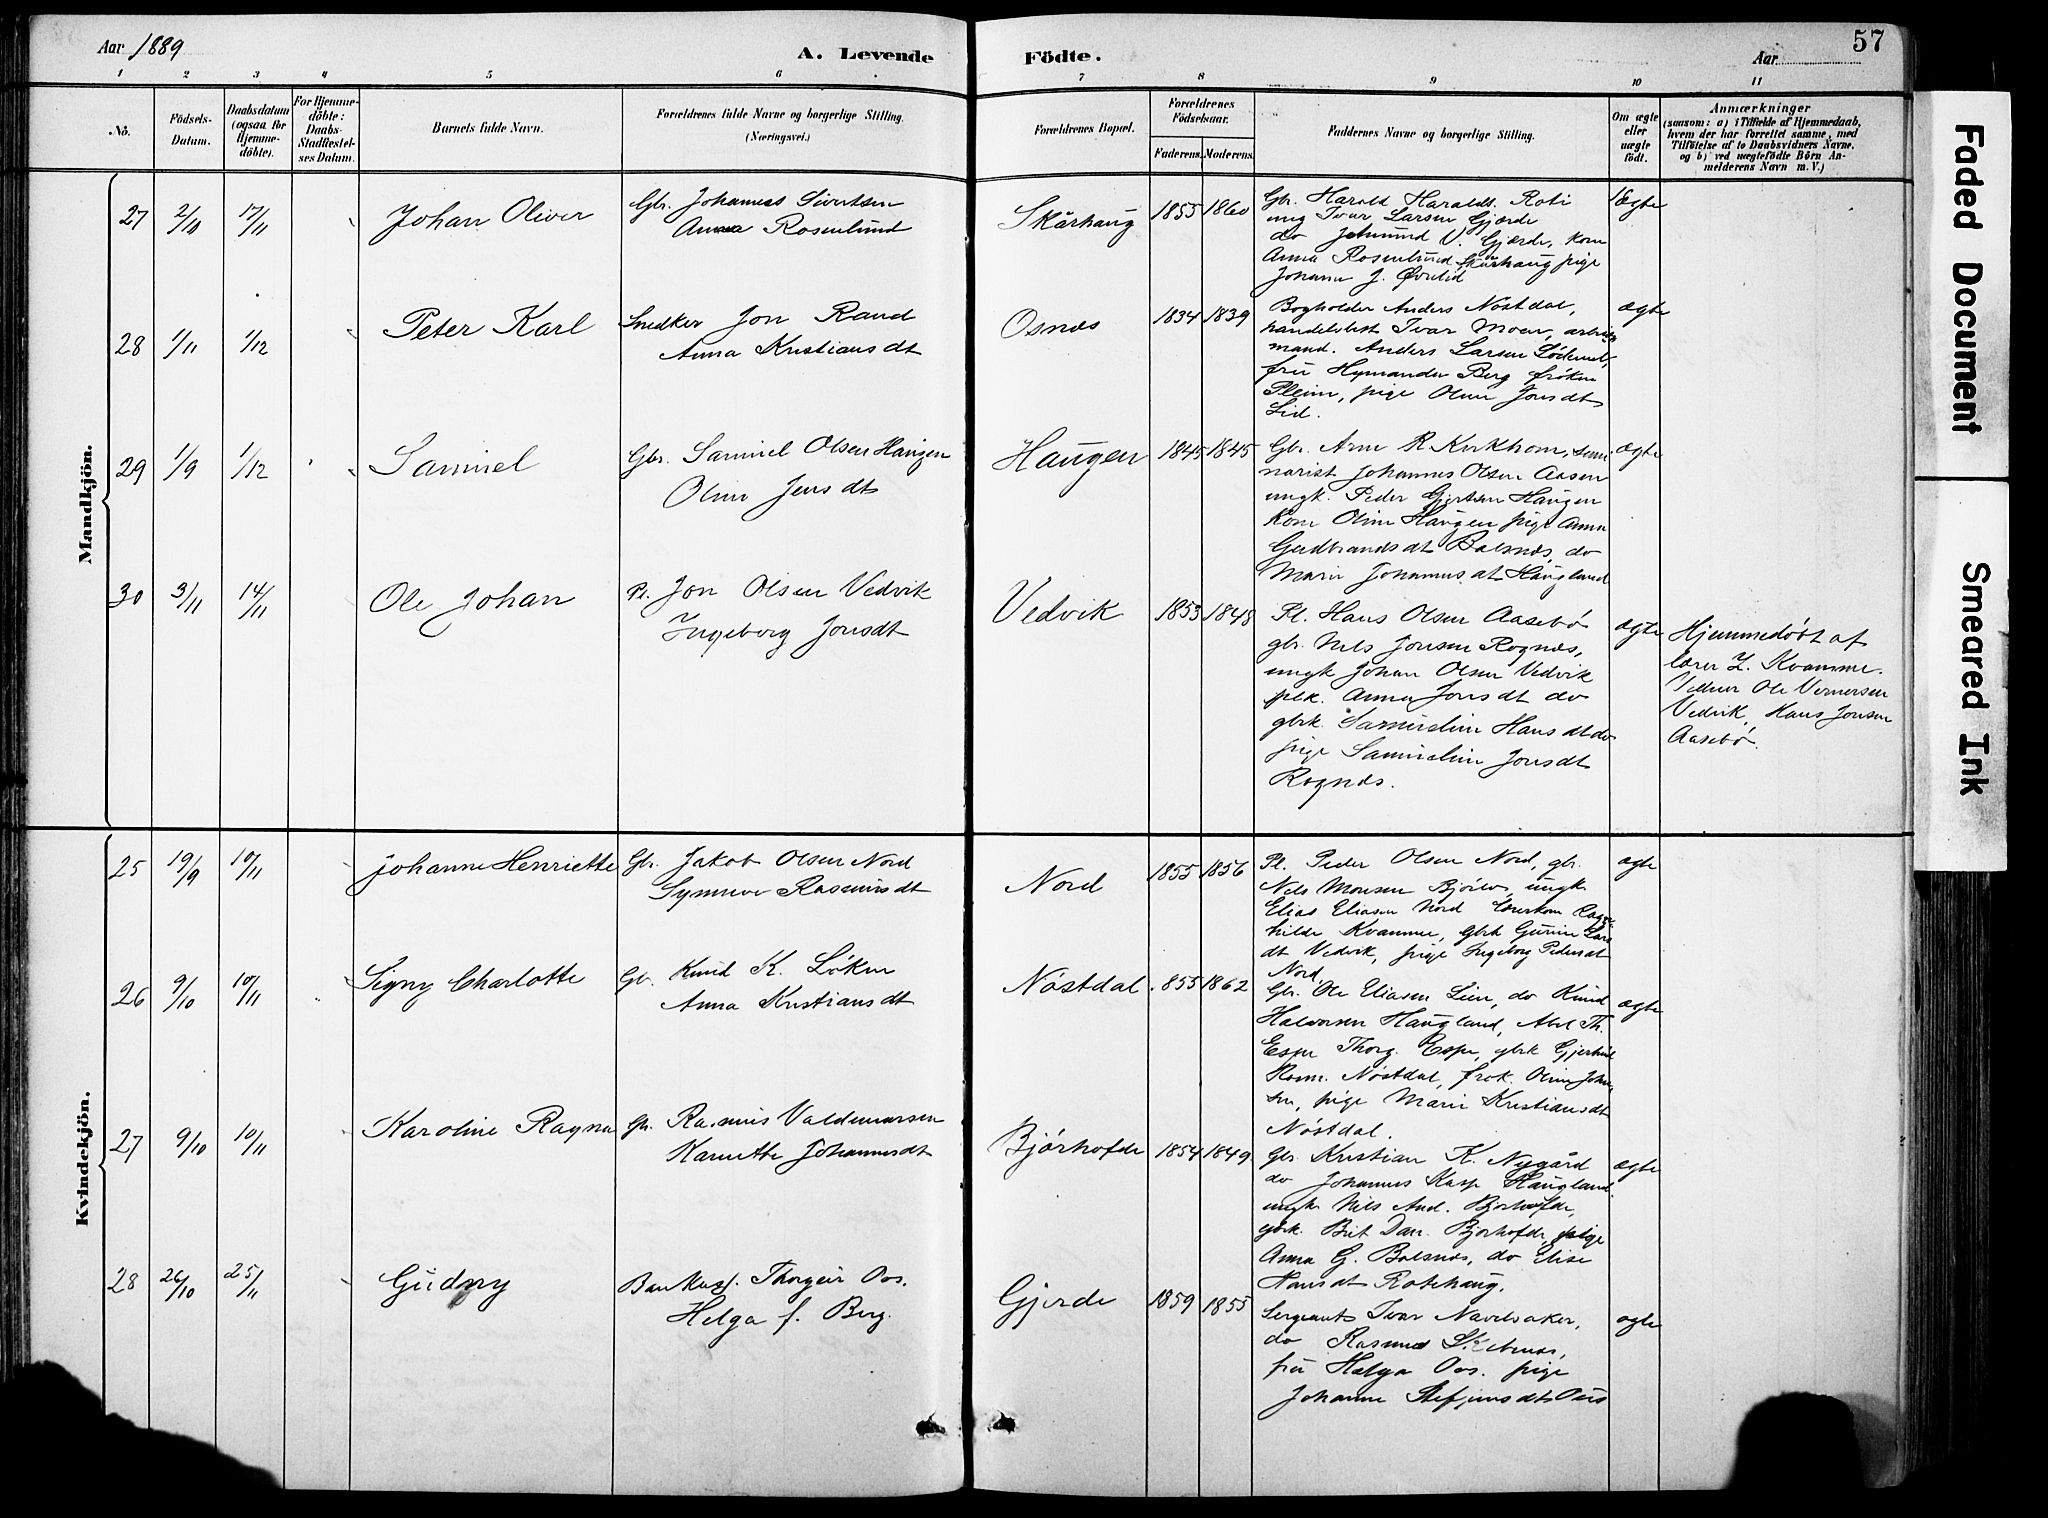 Aar 1889
A. Levende
Födte.
Aar
57
1 2 3 4 5 6 7 8 9 10 11
No.
Födsels-Datum.
Daabsdatum (ogsaa for Hjemme-döbte).
For Hjemme-döbte: Daabs-Stadfæstelses Datum.
Barnets fulde Navn.
Forældrenes fulde Navne og borgerlige Stilling.
(Næringsvei.)
Forældrenes Bopæl.
Forældrenes Födselsaar.
Faderens. Moderens.
Faddernes Navne og borgerlige Stilling.
Om ægte eller uægte födt.
Anmærkninger
(saasom: a) i Tilfælde af Hjemmedaab,
hvem der har forrettet samme, med
Tilföielse af to Daabsvidners Navne,
og b) ved uægtefödte Börn An-
melderens Navn m. V.)
Mandkjön.
27 2/10 17/11 Johan Oliver
Gbr. Johannes Sivertsen
Anna Rosenlund
Skårhaug 1855 1860
Gbr. Harold Haralds. Roti
ung Ivar Larsen Gjærde
do Jetmund V. Gjærde, kone
Anna Rosenlund Skårhaug pige
Johanne J. Øvrelid
Ægte
28 1/11 1/12 Peter Karl
Snedker Jon Rand
Anna Kristiansdt
Osnæs 1834 1839
Bogholder Anders Nøstdal,
handelsbest Ivar Moen, arbeids
mand. Anders Larsen
fru Hymander Berg frøken
Pleim, pige Oline Jonsdt
Lid.
ægte
29 1/9 1/12 Samuel
Gbr. Samuel Olsen Haugen
Oline Jensdt
Haugen 1845 1845
Gbr. Arne R Kirkhorn, semi
narist Johannes Olsen Aasen
ungk. Peder Gjertsen Haugen
Kone Oline Haugen pige Anna
Gudbrandsdt Balsnes, do
Marie Johannesdt Haugland
ægte
30 3/11 14/11 Ole Johan
Pl. Jon Olsen Vedvik
Ingeborg Jonsdt
Vedvik 1853 1848
Pl. Hans Olsen Aasebø
gbr. Nils Jonsen Rognæs,
ungk Johan Olsen Vedvik
plk. Anna Jonsdt do
gbrk. Samueline Hansdt do
pige Samueline Jonsdt
Rognæs.
ægte
Hjemmedøbt af
lærer Z. Kvamme.
Vidner Ole Vernersen
Vedvik, Hans Jonsen
Aasebø.
Kvindekjön.
25 19/9 10/11 Johanne Henriette
Gbr. Jakob Olsen Nord
Synneve Rasmusdt
Nord 1855 1856
Pl. Peder Olsen Nord, gbr.
Nils Monsen Bjørlo, ungk
Elias Eliasen Nord Enkekone Ragn
hilde Kvamme, gbrk Gurine Lars
dt Vedvik, pige Ingeborg Pedersdt
Nord
ægte
26 9/10 10/11 Signy Charlotte
Gbr. Knud K. Løken
Anna Kristiansdt
Nøstdal 1855 1862
Gbr. Ole Eliasen Lien, do Knud
Halvorsen Haugland, Abel Th.
Espe Thorg. Espe, gbrk Gjertrud
Rasm. Nøstdal, frøk. Oline Johan
sen, pige Marie Kristiansdt
Nøstdal.
ægte
27 9/10 10/11 Karoline Ragna
Gbr. Rasmus Valdemarsen
Hansette Johannesdt
Bjørhofde 1854 1849
Gbr. Kristian K. Nygård
do Johannes Kasp Haugland.
ungk Nils And. Bjørhofde,
gbrk. Brit Dan. Bjørhofde, pige
Anna G. Balsnes, do Elise
Hansdt Rotehaug.
ægte
28 26/10 25/11 Gudny
Bankass. Thorgeir Oos.
Helga f. Berg.
Gjerde 1859 1855
Sergeants Ivar Navelsaker,
do Rasmus
fru Helga Oos. pige
Johanne
ægte
Faded Document
Smeared Ink